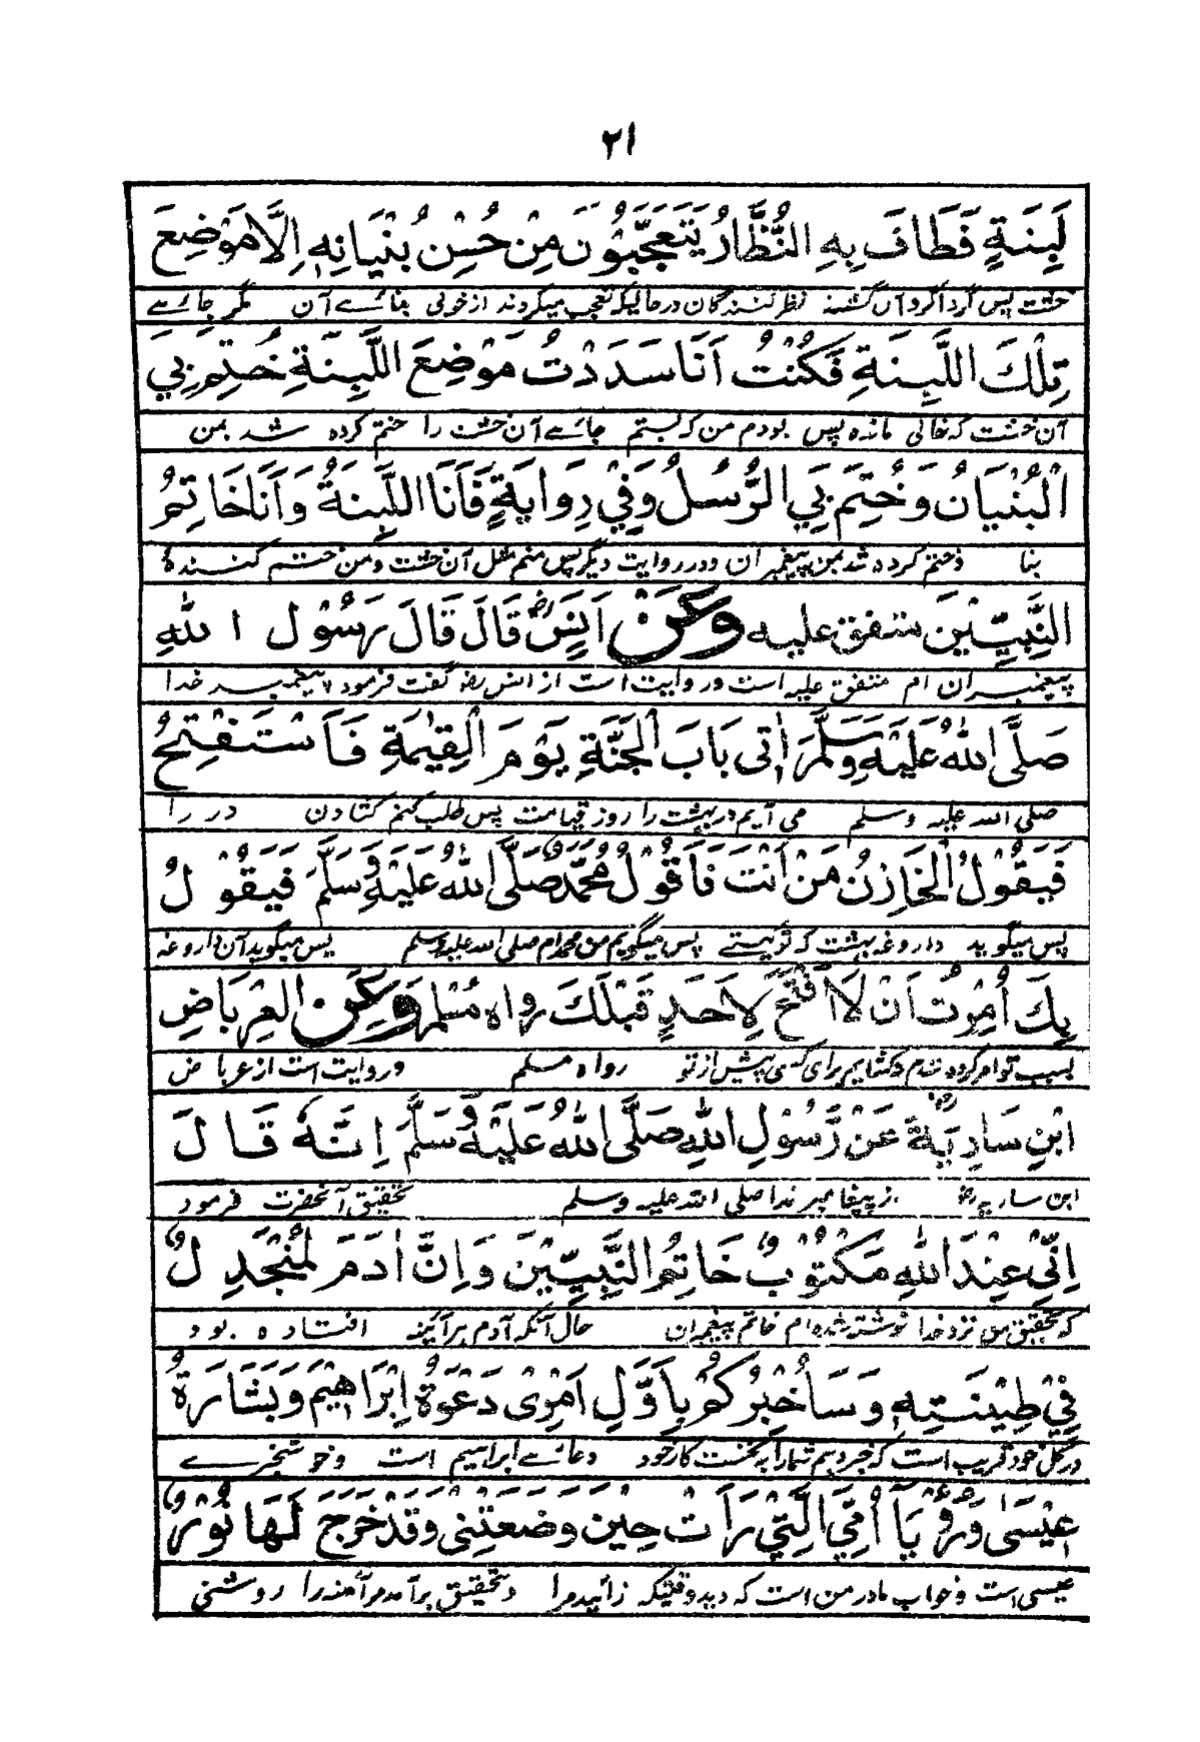 ٢١
لَبِنَةٍ فَطَافَ بِهِ النُّظَّارُ يَتَعَجَّبُونَ مِنْ حُسْنِ بُنْيَانِهٖ اِلَّا مَوْضِعَ
خشت پس گرداگرد آن گشتند نظر کنندگان در حالیکه تعجب میکردند از خوبی بنائے آن مگر جائے
تِلْكَ اللَّبِنَةِ فَكُنْتُ اَنَا سَدَدْتُ مَوْضِعَ اللَّبِنَةِ خُتِمَ بِيَ
آن خشت که خالی مانده پس بودم من که بستم جائے آن خشت را ختم کرده شد بمن
الْبُنْيَانُ وَخُتِمَ بِيَ الرُّسُلُ وَفِيْ رِوَايَةٍ فَاَنَا اللَّبِنَةُ وَاَنَا خَاتِمُ
بنا وختم کرده شد بمن پیغمبران ودر روایت دیگر پس منم مثل آن خشت ومن ختم کننده
النَّبِيِّيْنَ متفق عليه وَعَنْ اَنَسٍ رض قَالَ قَالَ رَسُوْلُ اللهِ
پیغمبران ام متفق علیه است وروایت است از انس رض گفت فرمود پیغمبر خدا
صَلَّى اللهُ عَلَيْهِ وَسَلَّمَ اٰتِى بَابَ الْجَنَّةِ يَوْمَ الْقِيٰمَةِ فَاَسْتَفْتِحُ
صلی الله علیه وسلم می آیم در بهشت را روز قیامت پس طلب کنم کشادن در را
فَيَقُوْلُ الْخَازِنُ مَنْ اَنْتَ فَاَقُوْلُ مُحَمَّدٌ صَلَّى اللهُ عَلَيْهِ وَسَلَّمَ فَيَقُوْلُ
پس میگوید داروغه بهشت که تو کیستے پس میگویم من محمدام صلی الله علیه وسلم پس میگوید آن داروغه
بِكَ اُمِرْتُ اَنْ لَا اَفْتَحَ لِاَحَدٍ قَبْلَكَ رواه مُسْلِم وَعَنِ الْعِرْبَاضِ
بسبب تو امر کرده شدم نکشایم برای کسی پیش از تو رواه مسلم وروایت است از عرباض
ابْنِ سَارِيَةَ رض عَنْ رَّسُوْلِ اللهِ صَلَّى اللهُ عَلَيْهِ وَسَلَّمَ اِنَّهٗ قَالَ
ابن ساریه رض از پیغامبر خدا صلی الله علیه وسلم تحقیق آنحضرت فرمود
اِنِّىْ عِنْدَ اللهِ مَكْتُوْبٌ خَاتِمُ النَّبِيِّيْنَ وَاِنَّ اٰدَمَ لَمُنْجَدِلٌ
که تحقیق من نزد خدا نوشته شده ام خاتم پیغمبران حال آنکه آدم هر آئینه افتاده بود
فِيْ طِيْنَتِهٖ وَسَاُخْبِرُكُمْ بِاَوَّلِ اَمْرِىْ دَعْوَةُ اِبْرَاهِيْمَ وَبَشَارَةُ
در گل خود قریب است که خبر دهم شمارا به نخست کار خود دعائے ابراهیم است وخوشخبرے
عِيْسٰى وَرُؤْيَا اُمِّيَ الَّتِيْ رَأَتْ حِيْنَ وَضَعَتْنِى وَقَدْ خَرَجَ لَهَا نُوْرٌ
عیسی است وخواب مادر من است که دید وقتیکه زائید مرا وتحقیق برآمد مر آمنه را روشنی